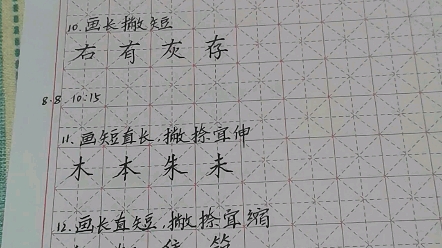 10.画长撇短
右 有 灰 存
8.8 10:15
11.画短直长,撇捺宜伸
木 本 朱 未
12.画长直短,撇捺宜缩